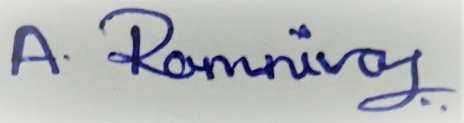 A. Ramnivas